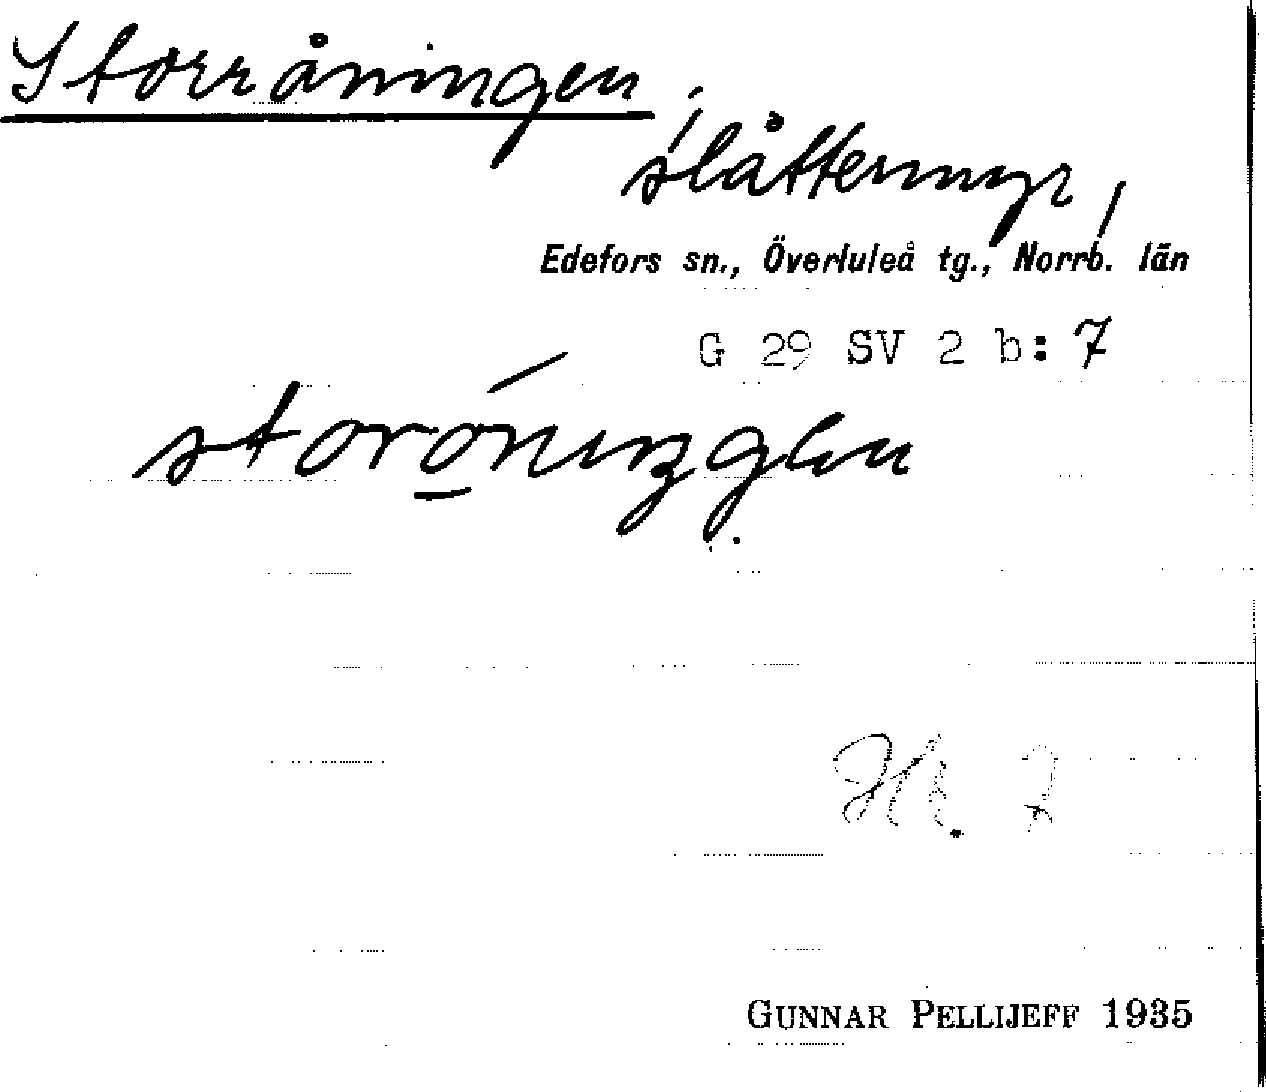 Storråningen,
slåttermyr,
Edefors sn., Överluleå tg., Norrb. län
G 29 SV 2 b: 7
Hk. 7
GUNNAR PELLIJEFF 1935